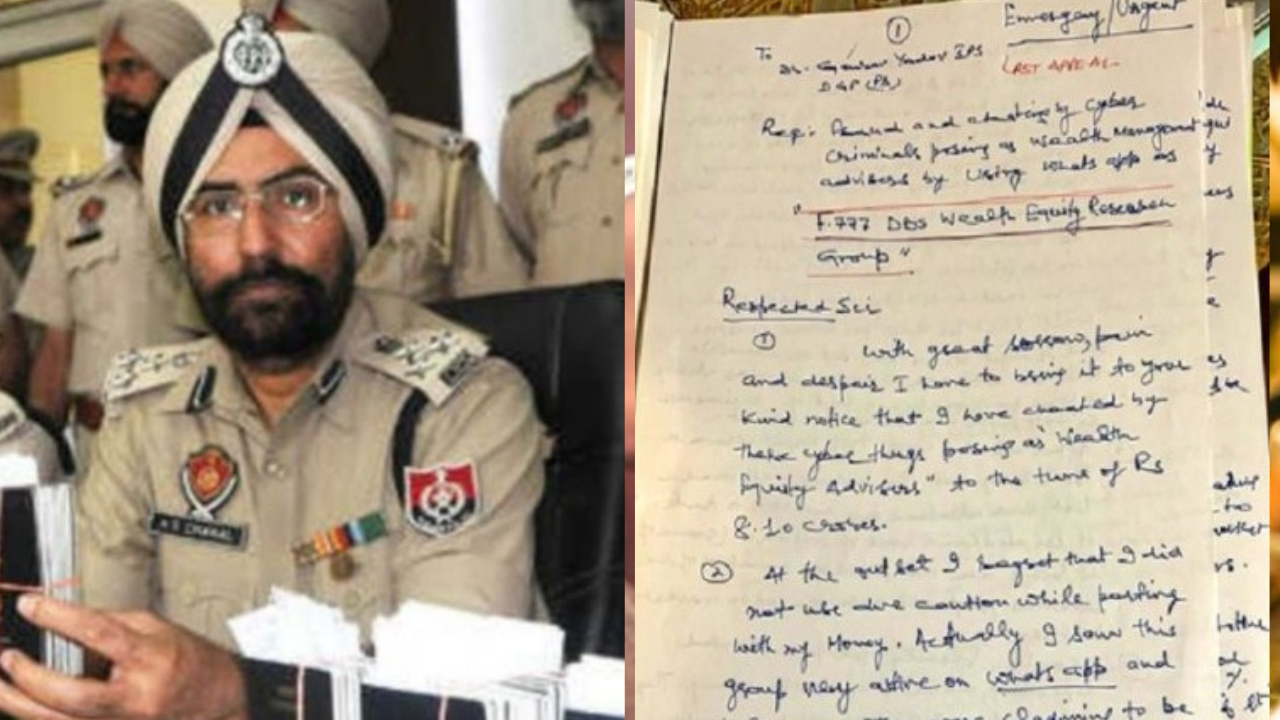 CHAHAL
①
Emergency/Urgent
LAST APPEAL
To
Dr. Gaurav Yadav IPS
DGP (Pb)
Reg: Fraud and cheating by cyber
criminals posing as wealth Management
advisers by using whats app as
"F.777 DBS Wealth Equity Research
Group"
Respected Sir
① With great sorrow, pain
and despair I have to bring it to your
kind notice that I have cheated by
these cyber thugs posing as "Wealth
Equity Advisers" to the tune of Rs
8.10 crores.
② At the outset I regret that I did
not use due caution while parting
with my Money. Actually I saw this
group very active on whats app and
to be